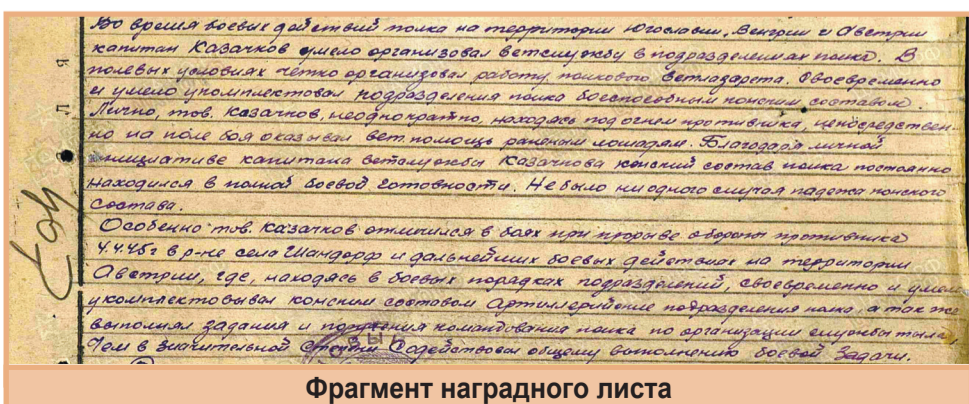 Во время боевых действий полка на территории Югославии, Венгрии и Австрии
капитан Казачков умело организовал ветслужбу в подразделениях полка. В
полевых условиях четко организовал работу полкового ветлазарета. Своевременно
и умело укомплектовал подразделения полка боеспособным конским составом.
Лично, тов. Казачков, неоднократно, находясь под огнем противника, непосредствен-
но на поле боя оказывал вет. помощь раненым лошадям. Благодаря личной
инициативе капитана ветслужбы Казачкова конский состав полка постоянно
находился в полной боевой готовности. Не было ни одного случая падежа конского
состава.
Особенно тов. Казачков отличился в боях при прорыве обороны противника
4.4.45г в р-не села Шандорф и дальнейших боевых действиях на территории
Австрии, где, находясь в боевых порядках подразделений, своевременно и умело
укомплектовывал конским составом артиллерийские подразделения полка, а так же
выполнял задания и поручения командования полка по организации службы тыла,
чем в значительной степени содействовал общему выполнению боевой задачи.
Фрагмент наградного листа